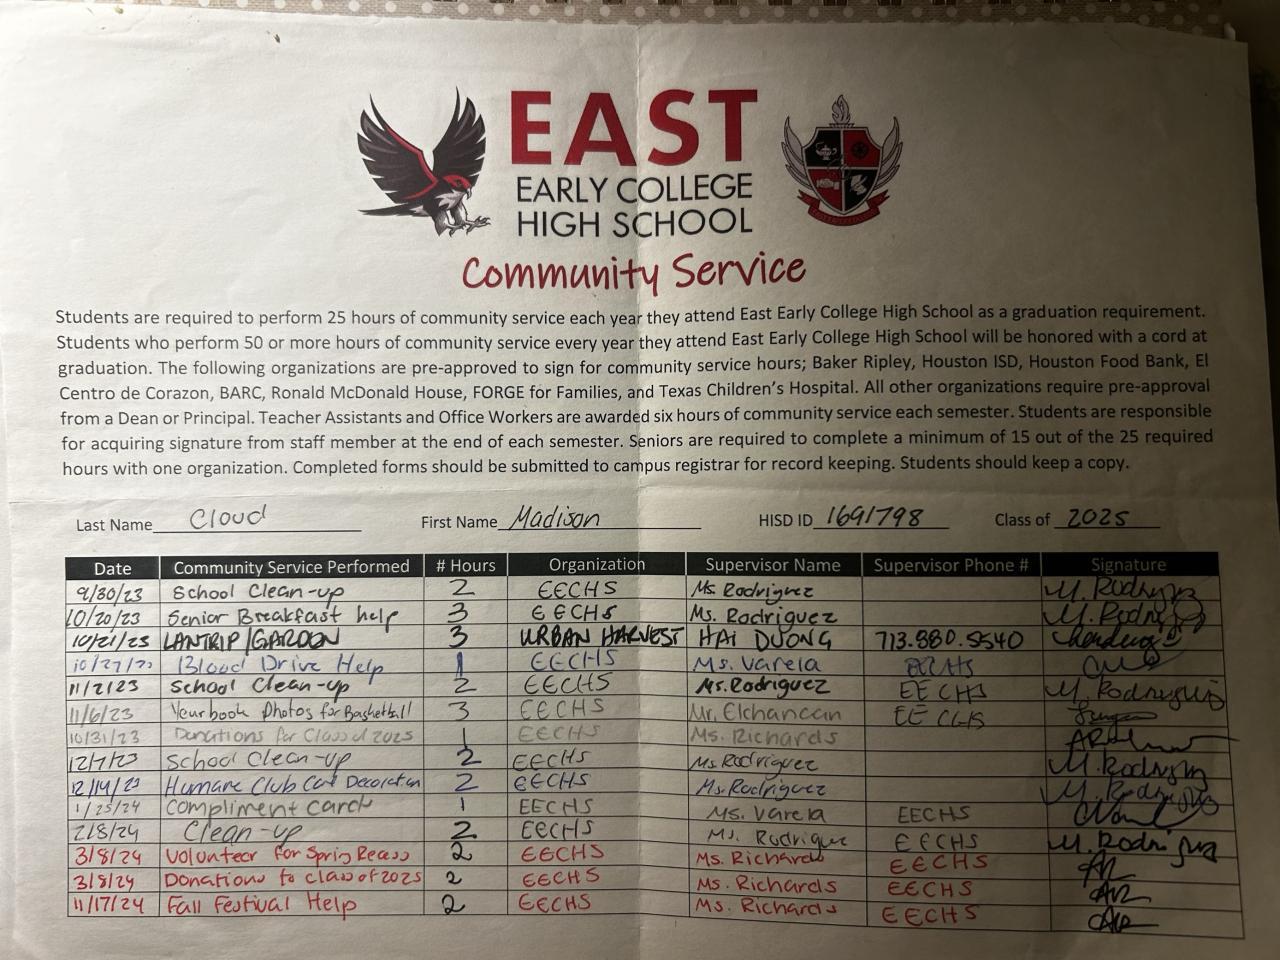 EAST
EARLY COLLEGE
HIGH SCHOOL
Community Service
Students are required to perform 25 hours of community service each year they attend East Early College High School as a graduation requirement.
Students who perform 50 or more hours of community service every year they attend East Early College High School will be honored with a cord at
graduation. The following organizations are pre-approved to sign for community service hours; Baker Ripley, Houston ISD, Houston Food Bank, El
Centro de Corazon, BARC, Ronald McDonald House, FORGE for Families, and Texas Children's Hospital. All other organizations require pre-approval
from a Dean or Principal. Teacher Assistants and Office Workers are awarded six hours of community service each semester. Students are responsible
for acquiring signature from staff member at the end of each semester. Seniors are required to complete a minimum of 15 out of the 25 required
hours with one organization. Completed forms should be submitted to campus registrar for record keeping. Students should keep a copy.
Last Name Cloud First Name Madison HISD ID 1691798 Class of 2025
Date Community Service Performed # Hours Organization Supervisor Name Supervisor Phone # Signature
9/30/23 School Clean-up 2 EECHS Ms. Rodriguez M. Rodriguez
10/20/23 Senior Breakfast help 3 EECHS Ms. Rodriguez M. Rodriguez
10/21/23 LANTRIP/GARDEN 3 URBAN HARVEST HAI DUONG 713.880.5540
10/27/23 Blood Drive Help 1 EECHS Ms. Varela
11/2/23 School Clean-up 2 EECHS Ms. Rodriguez EECHS M. Rodriguez
11/6/23 Yearbook Photos for Basketball 3 EECHS Mr. Elchancan EECHS
10/31/23 Donations for Class of 2025 1 EECHS Ms. Richards
12/7/23 School Clean-up 2 EECHS Ms Rodriguez M. Rodriguez
12/14/23 Humane Club Cat Decoration 2 EECHS Ms. Rodriguez M. Rodriguez
1/25/24 Compliment Card 1 EECHS Ms. Varela EECHS
2/8/24 Clean-up 2 EECHS Ms. Rodriguez EECHS M. Rodriguez
3/8/24 Volunteer for Spring Recess 2 EECHS Ms. Richards EECHS
3/8/24 Donations to class of 2025 2 EECHS Ms. Richards EECHS
11/17/24 Fall Festival Help 2 EECHS Ms. Richards EECHS